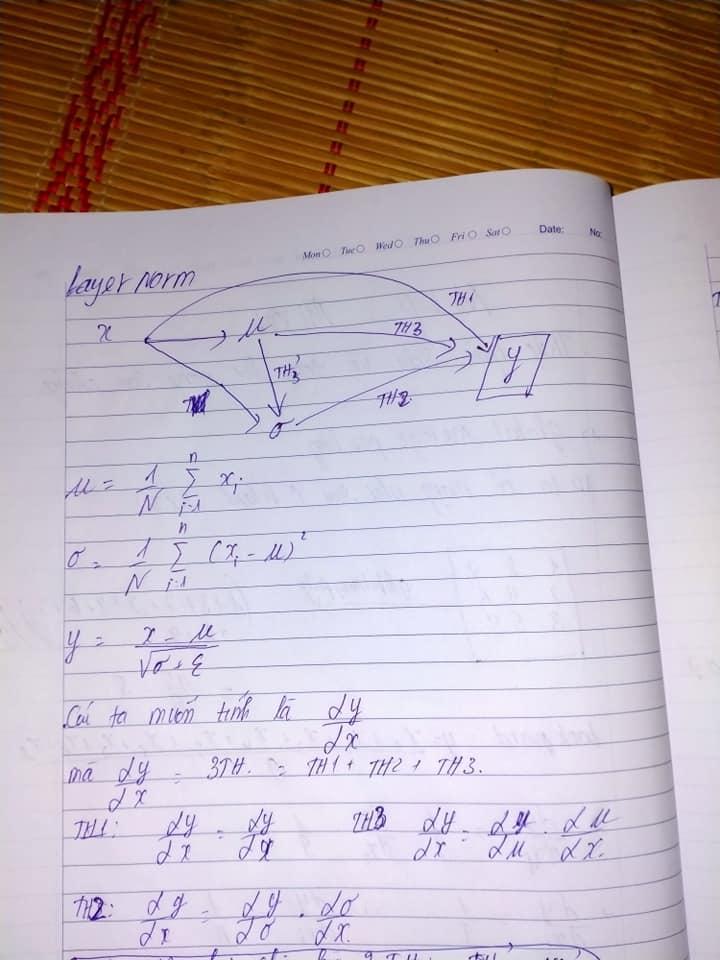 Mon Tue Wed Thu Fri Sat Date: No:
Layer norm
TH1
x μ TH3 y
TH3'
TH2
σ
μ = 1/N Σ_{i=1}^{n} x_i
σ = 1/N Σ_{i=1}^{n} (x_i - μ)^2
y = (x - μ)/√(σ + ε)
Cái ta muốn tính là dy/dx
mà dy/dx = 3TH. = TH1 + TH2 + TH3.
TH1: dy/dx = dy/dx TH3 dy/dx = dy/dμ . dμ/dx.
TH2: dy/dx = dy/dσ . dσ/dx.